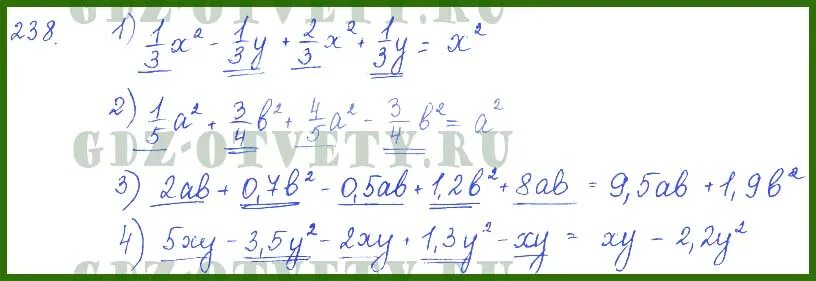 GDZ-OTVETY.RU
238. 1) 1/3 x² - 1/3 y + 2/3 x² + 1/3 y = x²
2) 1/5 a² + 3/4 b² + 4/5 a² - 3/4 b² = a²
GDZ-OTVETY.RU
3) 2ab + 0,7b² - 0,5ab + 1,2b² + 8ab = 9,5ab + 1,9b²
4) 5xy - 3,5y² - 2xy + 1,3y² - xy = xy - 2,2y²
GDZ-OTVETY.RU